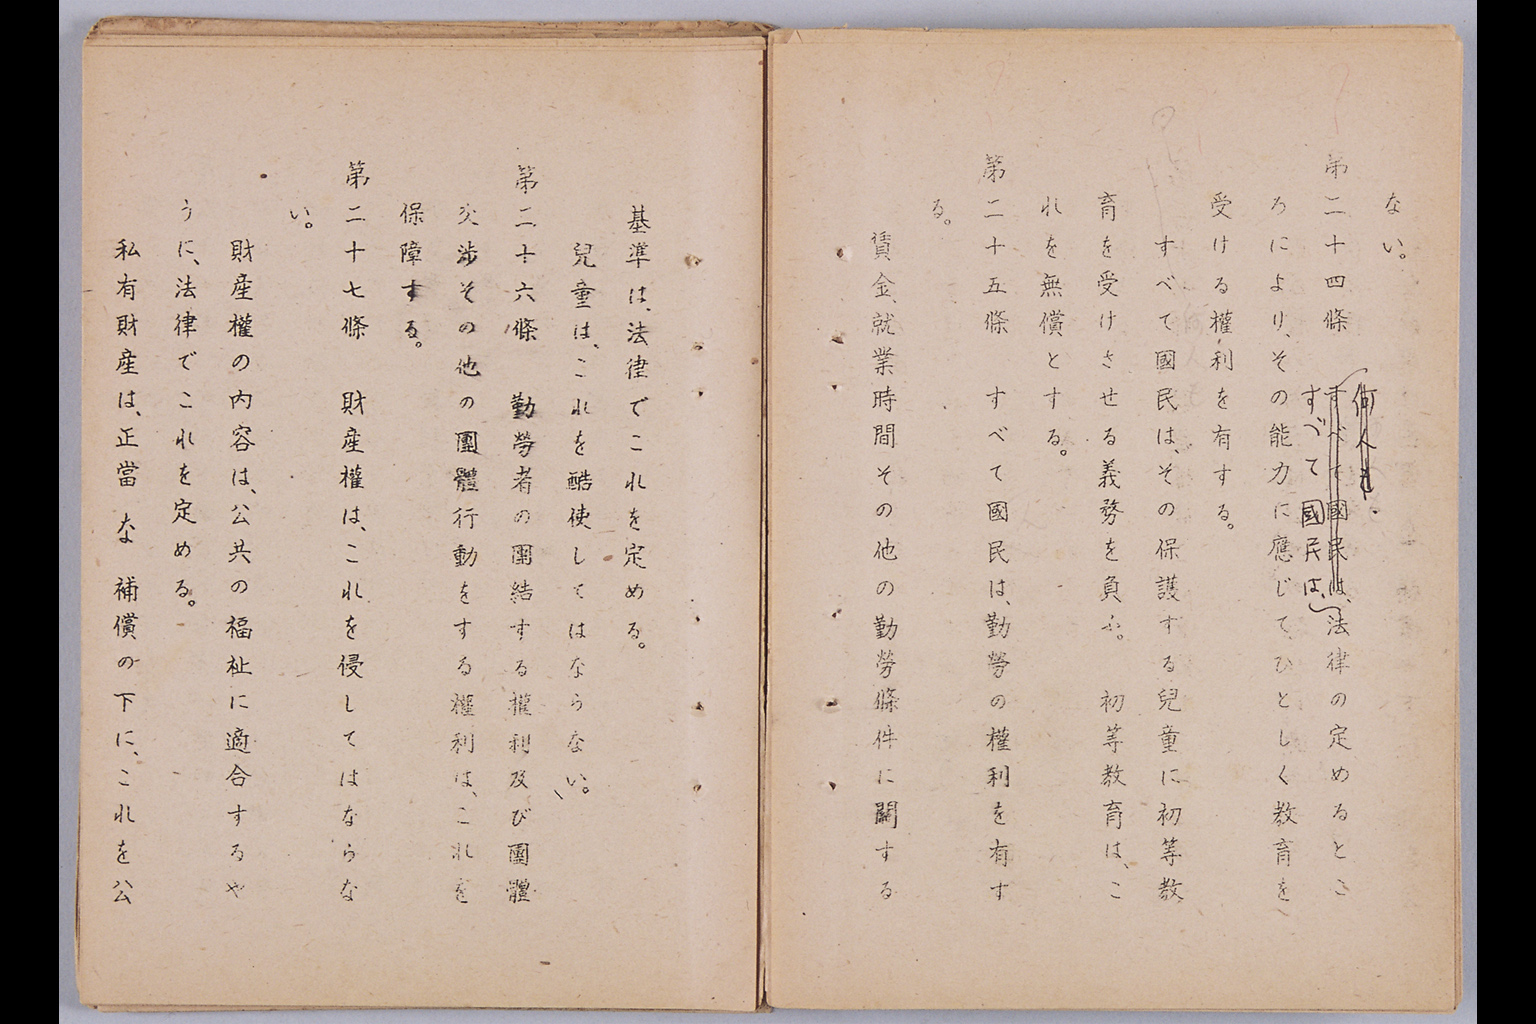 ない。
何人も
第二十四條　すべて國民は、法律の定めるとこ
すべて國民は、
ろにより、その能力に應じて、ひとしく教育を
受ける權利を有する。
すべて國民は、その保護する兒童に初等教
育を受けさせる義務を負ふ。　初等教育は、こ
れを無償とする。
第二十五條　すべて國民は、勤勞の權利を有す
る。
賃金、就業時間その他の勤勞條件に關する
基準は、法律でこれを定める。
兒童は、これを酷使してはならない。
第二十六條　勤勞者の團結する權利及び團體
交渉その他の團體行動をする權利は、これを
保障する。
第二十七條　財産權は、これを侵してはならな
い。
財産權の内容は、公共の福祉に適合するや
うに、法律でこれを定める。
私有財産は、正當な補償の下に、これを公